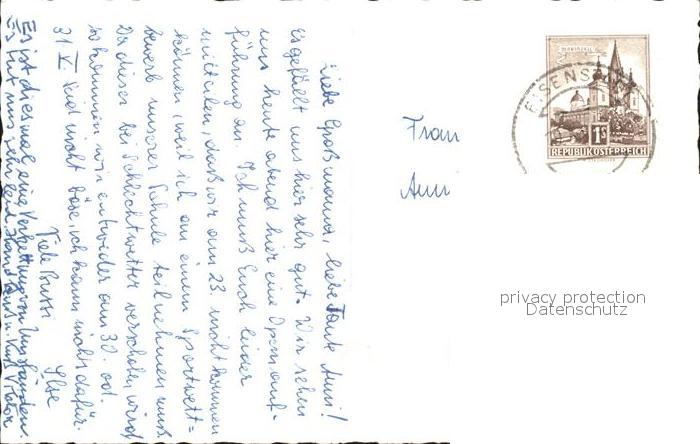 Liebe Großmama, liebe Tante Anni!
Es gefällt uns hier sehr gut. Wir sehen
uns heute abend hier eine Opernauf-
führung an. Ich muß Euch leider
mitteilen, daß wir am 23. nicht kommen
können, weil ich an einem Sportwett=
bewerb unserer Schule teilnehmen muß
Da dieser bei Schlechtwetter verschoben wird
so kommen wir entweder am 30. od.
31 V. Seid nicht böse, ich kann nichts dafür.
Viele Bussi
Ilse
Es ist diesmal eine Verkettung von Umständen.
Es tut mir
Frau
Anni
MARIAZELL
EISENSTADT
1 S
REPUBLIK ÖSTERREICH
privacy protection
Datenschutz